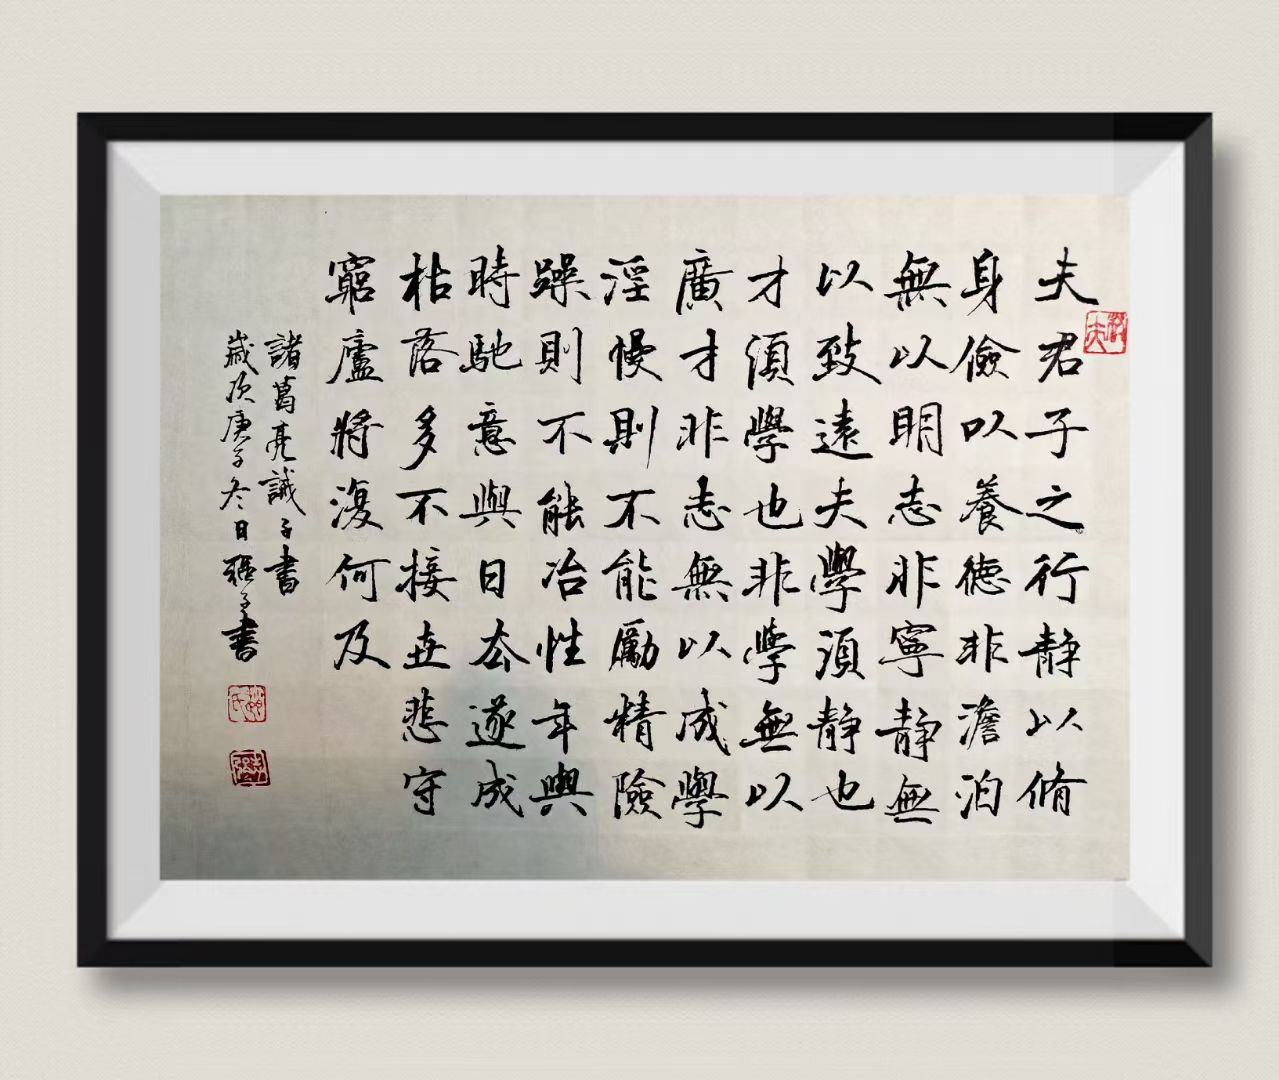 夫君子之行静以脩
身儉以養德非澹泊
無以明志非寧静無
以致遠夫學須静也
才須學也非學無以
廣才非志無以成學
淫慢則不能勵精險
躁則不能冶性年與
時馳意與日去遂成
枯落多不接世悲守
窮廬將復何及
諸葛亮誡子書
歲次庚子冬日書